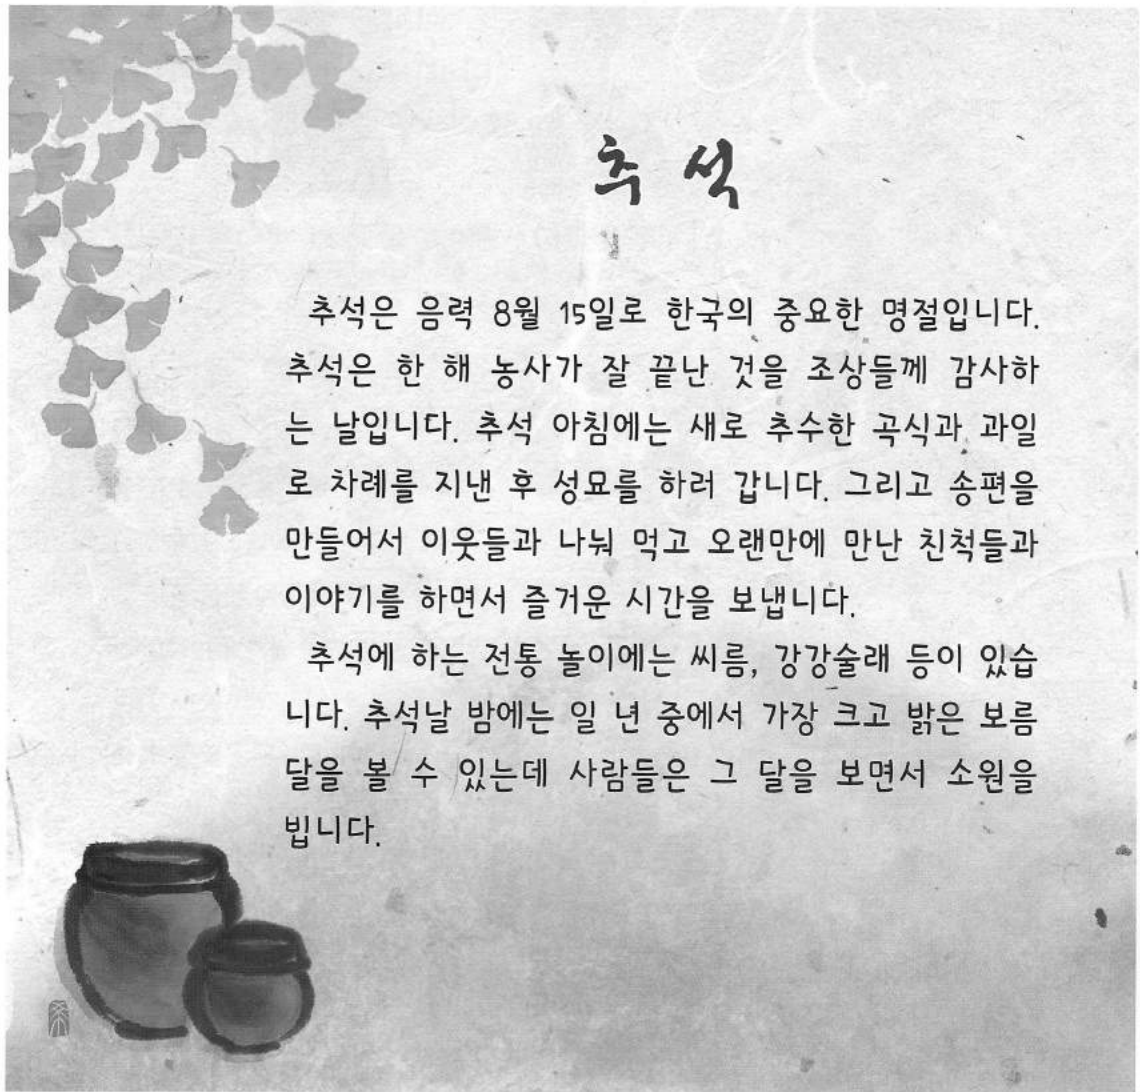 추석
추석은 음력 8월 15일로 한국의 중요한 명절입니다.
추석은 한 해 농사가 잘 끝난 것을 조상들께 감사하
는 날입니다. 추석 아침에는 새로 추수한 곡식과 과일
로 차례를 지낸 후 성묘를 하러 갑니다. 그리고 송편을
만들어서 이웃들과 나눠 먹고 오랜만에 만난 친척들과
이야기를 하면서 즐거운 시간을 보냅니다.
추석에 하는 전통 놀이에는 씨름, 강강술래 등이 있습
니다. 추석날 밤에는 일 년 중에서 가장 크고 밝은 보름
달을 볼 수 있는데 사람들은 그 달을 보면서 소원을
빕니다.